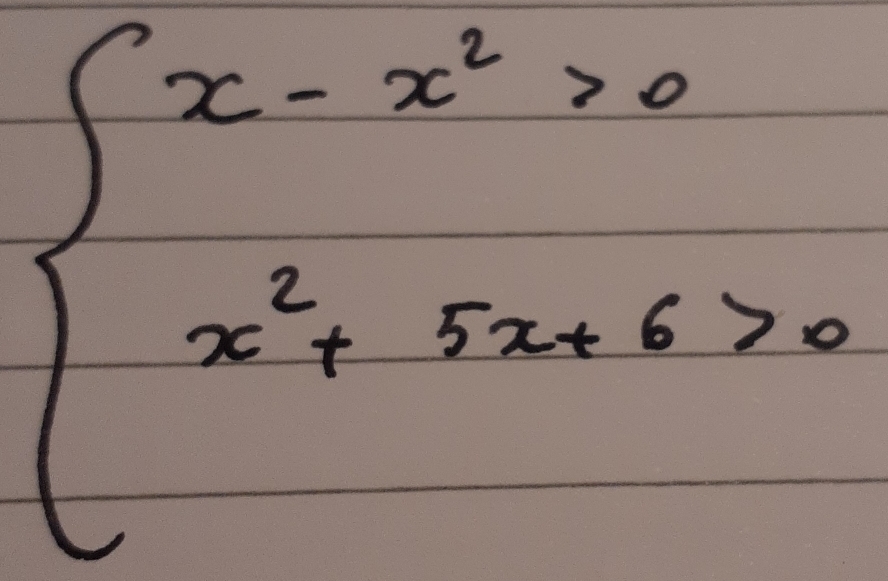 x - x² > 0
x² + 5x + 6 > 0